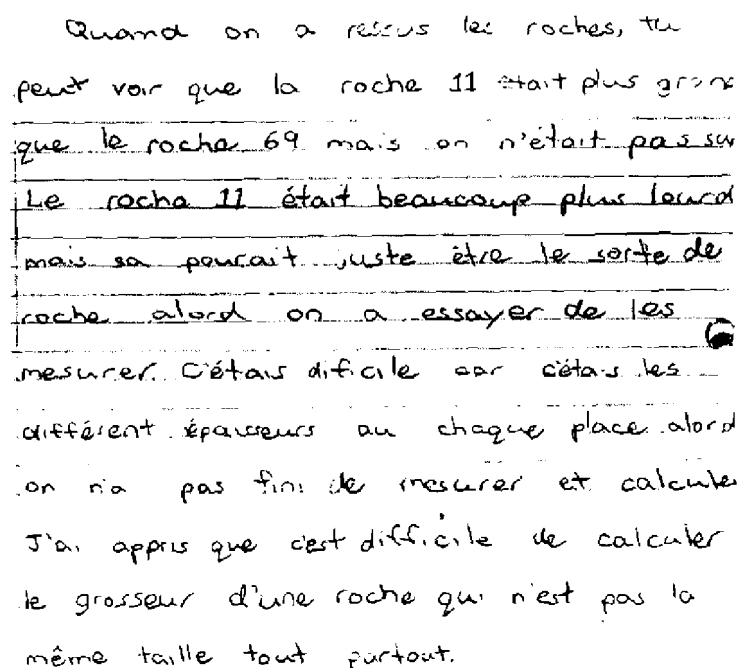 Quand on a ressus les roches, tu
peut voir que la roche 11 était plus grand
que le roche 69 mais on n'était pas sur
Le roche 11 était beaucoup plus lourd
mais sa pourait juste être le sorte de
roche alord on a essayer de les
mesurer. C'étais dificile car c'étais les
différent épaisseurs au chaque place alord
on n'a pas fini de mesurer et calculer
J'ai appris que c'est difficile de calculer
le grosseur d'une roche qui n'est pas la
même taille tout partout.